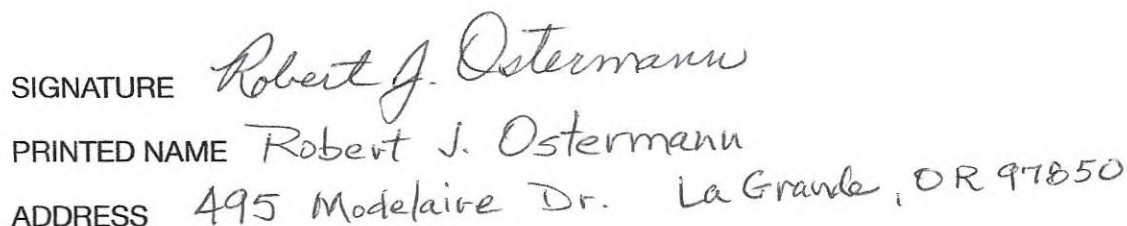 SIGNATURE Robert J. Ostermann
PRINTED NAME Robert J. Ostermann
ADDRESS 495 Modelaire Dr. La Grande, OR 97850